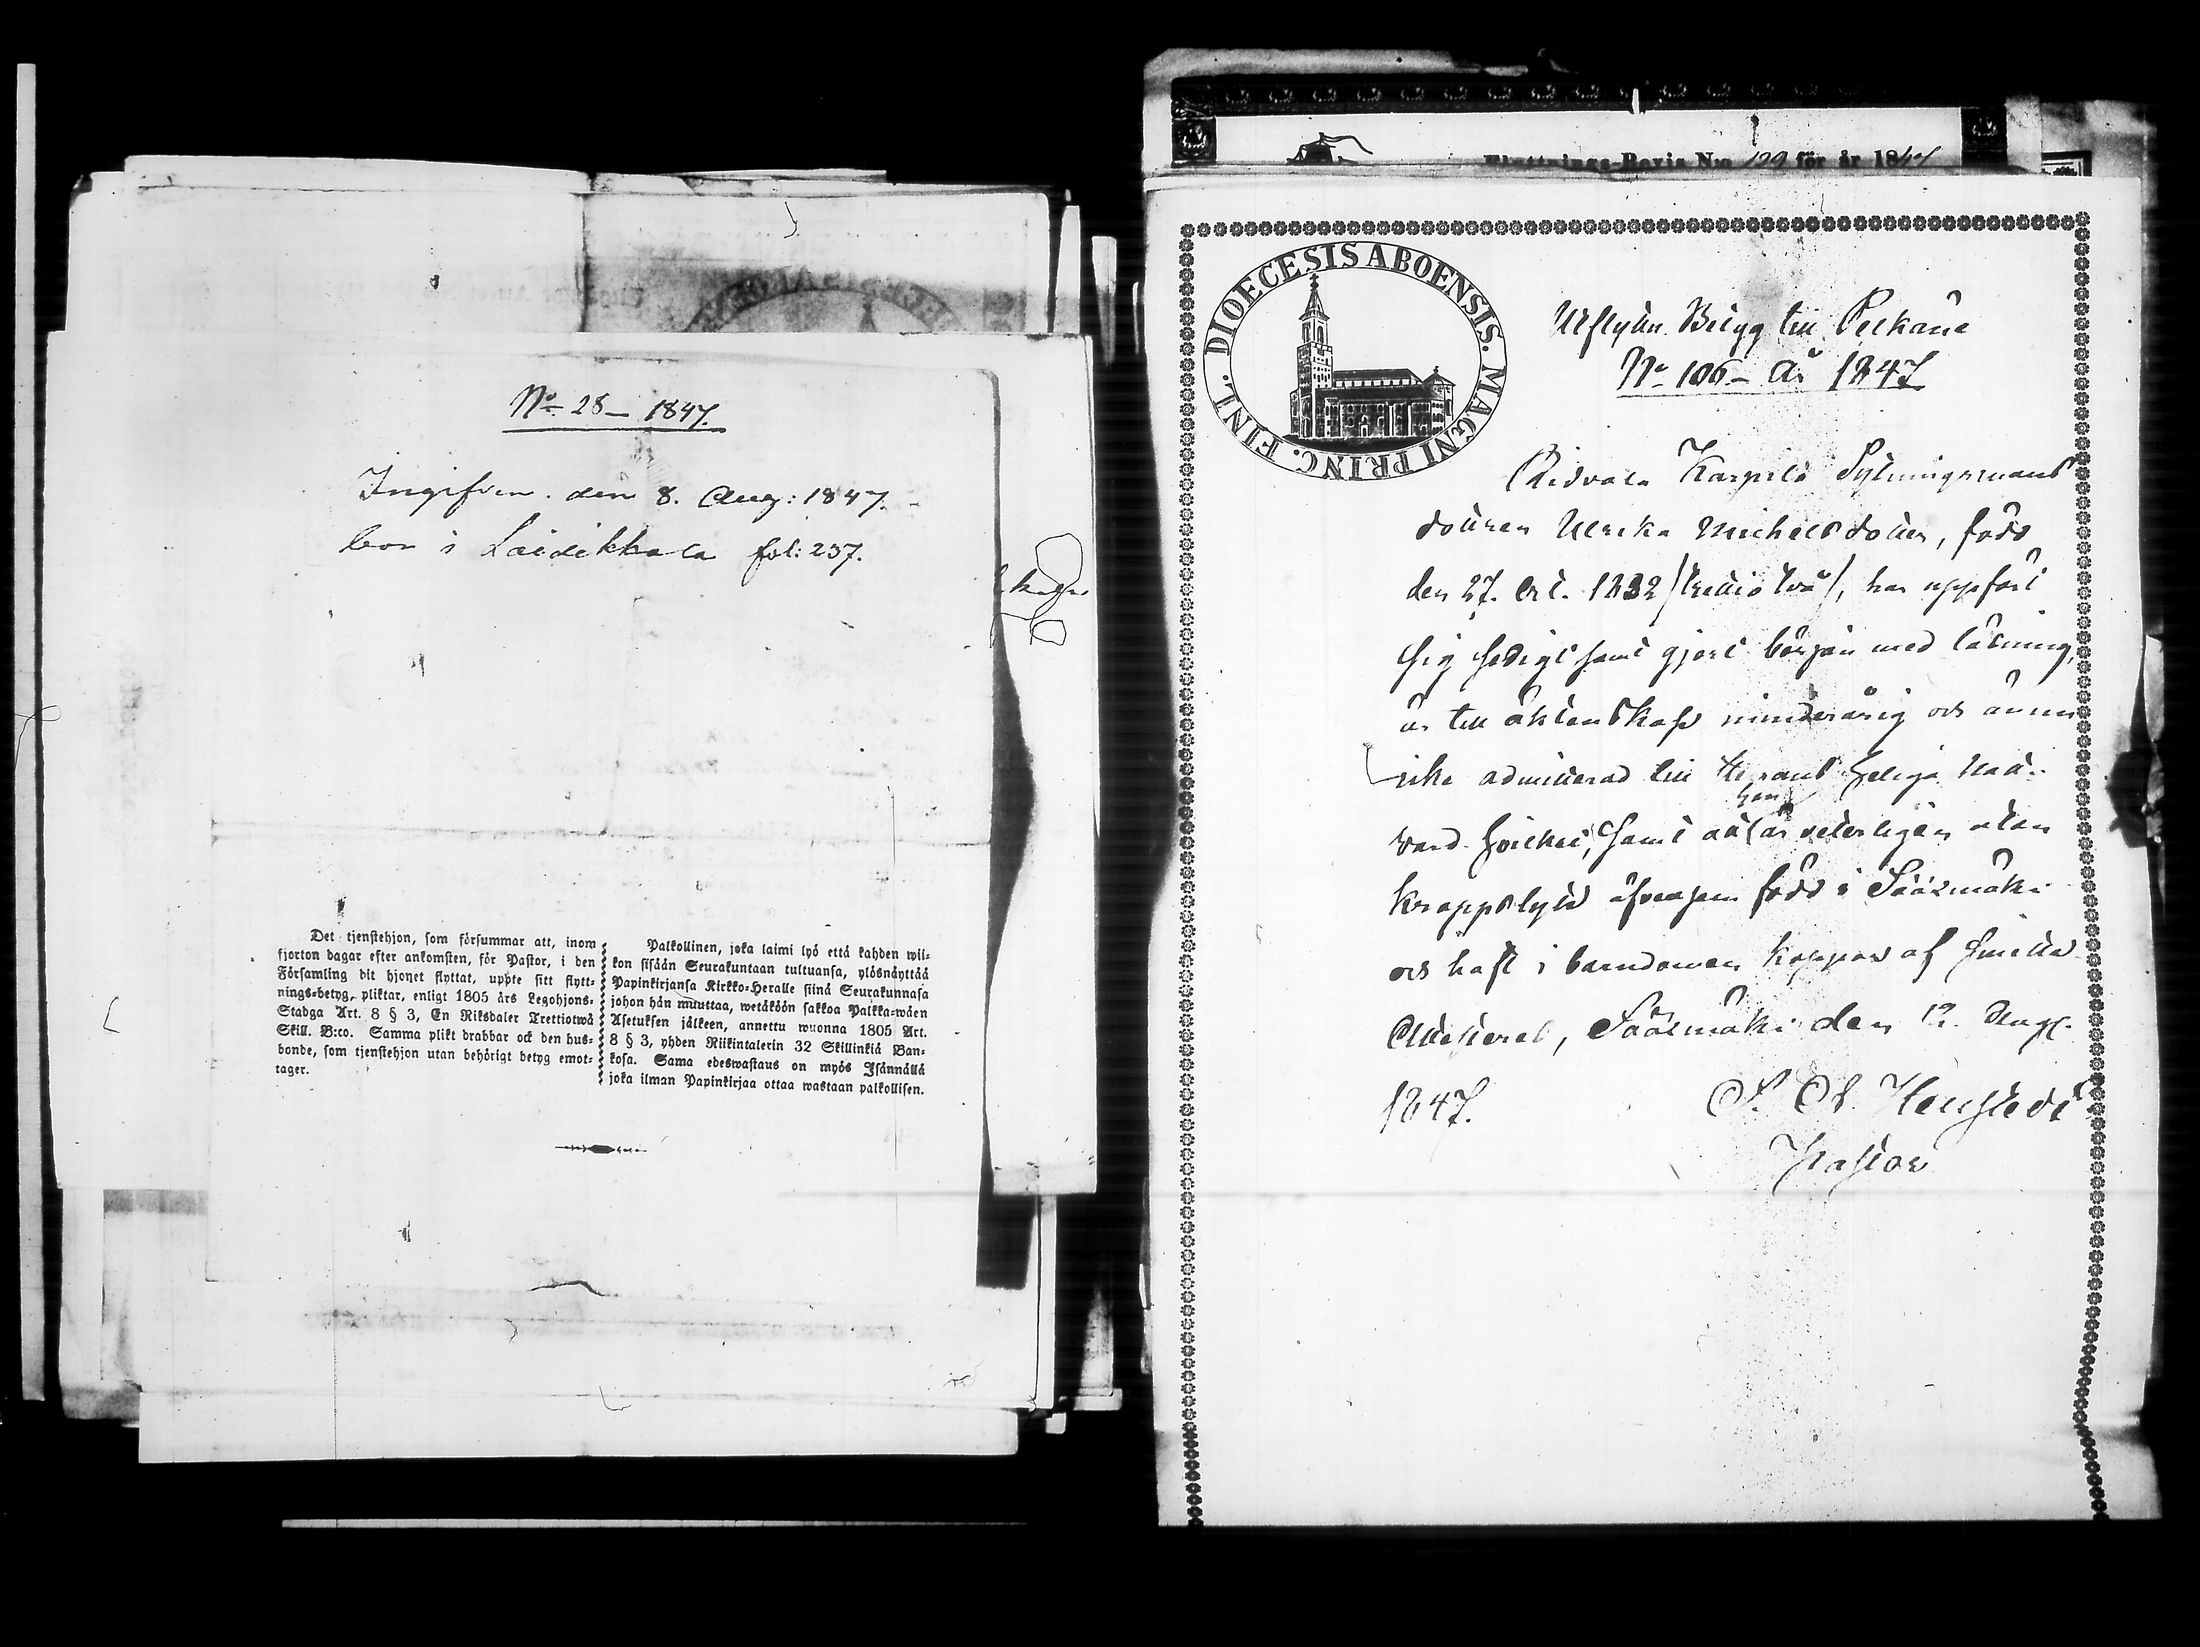 No 28 – 1847.
Ingifven. den 8. Aug: 1847.
bor i Laidikkala fol: 237.
Det tjenstehjon, som försummar att, inom
fjorton dagar efter ankomsten, för Pastor, i den
Församling dit hjonet flyttat, uppte sitt flytt-
nings-betyg, pliktar, enligt 1805 års Legohjons-
Stadga Art. 8 § 3, En Riksdaler Trettiotwå
Skill. B:co. Samma plikt drabbar ock den hus-
bonde, som tjenstehjon utan behörigt betyg emot-
tager.
Palkollinen, joka laimi lyö että kahden wii-
kon sisään Seurakuntaan tultuansa, ylösnäyttää
Papinkirjansa Kirkko-Heralle siinä Seurakunnasa
johon hän muuttaa, wetäköön sakkoa Palkka-wäen
Asetuksen jälkeen, annettu wuonna 1805 Art.
8 § 3, yhden Riikintalerin 32 Skillinkiä Ban-
kosa. Sama edeswastaus on myös Isännällä
joka ilman Papinkirjaa ottaa wastaan palkollisen.
Flyttnings-Bevis N:o 129 för år 18
DIOECESIS ABOENSIS. MAGNI PRINC. FINL.
Utflyttn. Betyg till Pelkäne
No 106 – År 1847
Ridvala Karpila Sytningsmans
dottren Ulrika Michelsdotter, född
den 27. Oct. 1832 /trettio två/, har uppfört
sig sedigt samt gjort början med läsning,
är till äktenskap minderårig och ännu
icke admitterad till Herrans Heliga Natt-
vard hvilket, samt att hon är veterligen utan
kroppslyte äfvensom född i Sääxmäki
och haft i barndomen koppor af smitta
Attesterat, Sääxmäki den 12. Aug.
1847.
Pastor